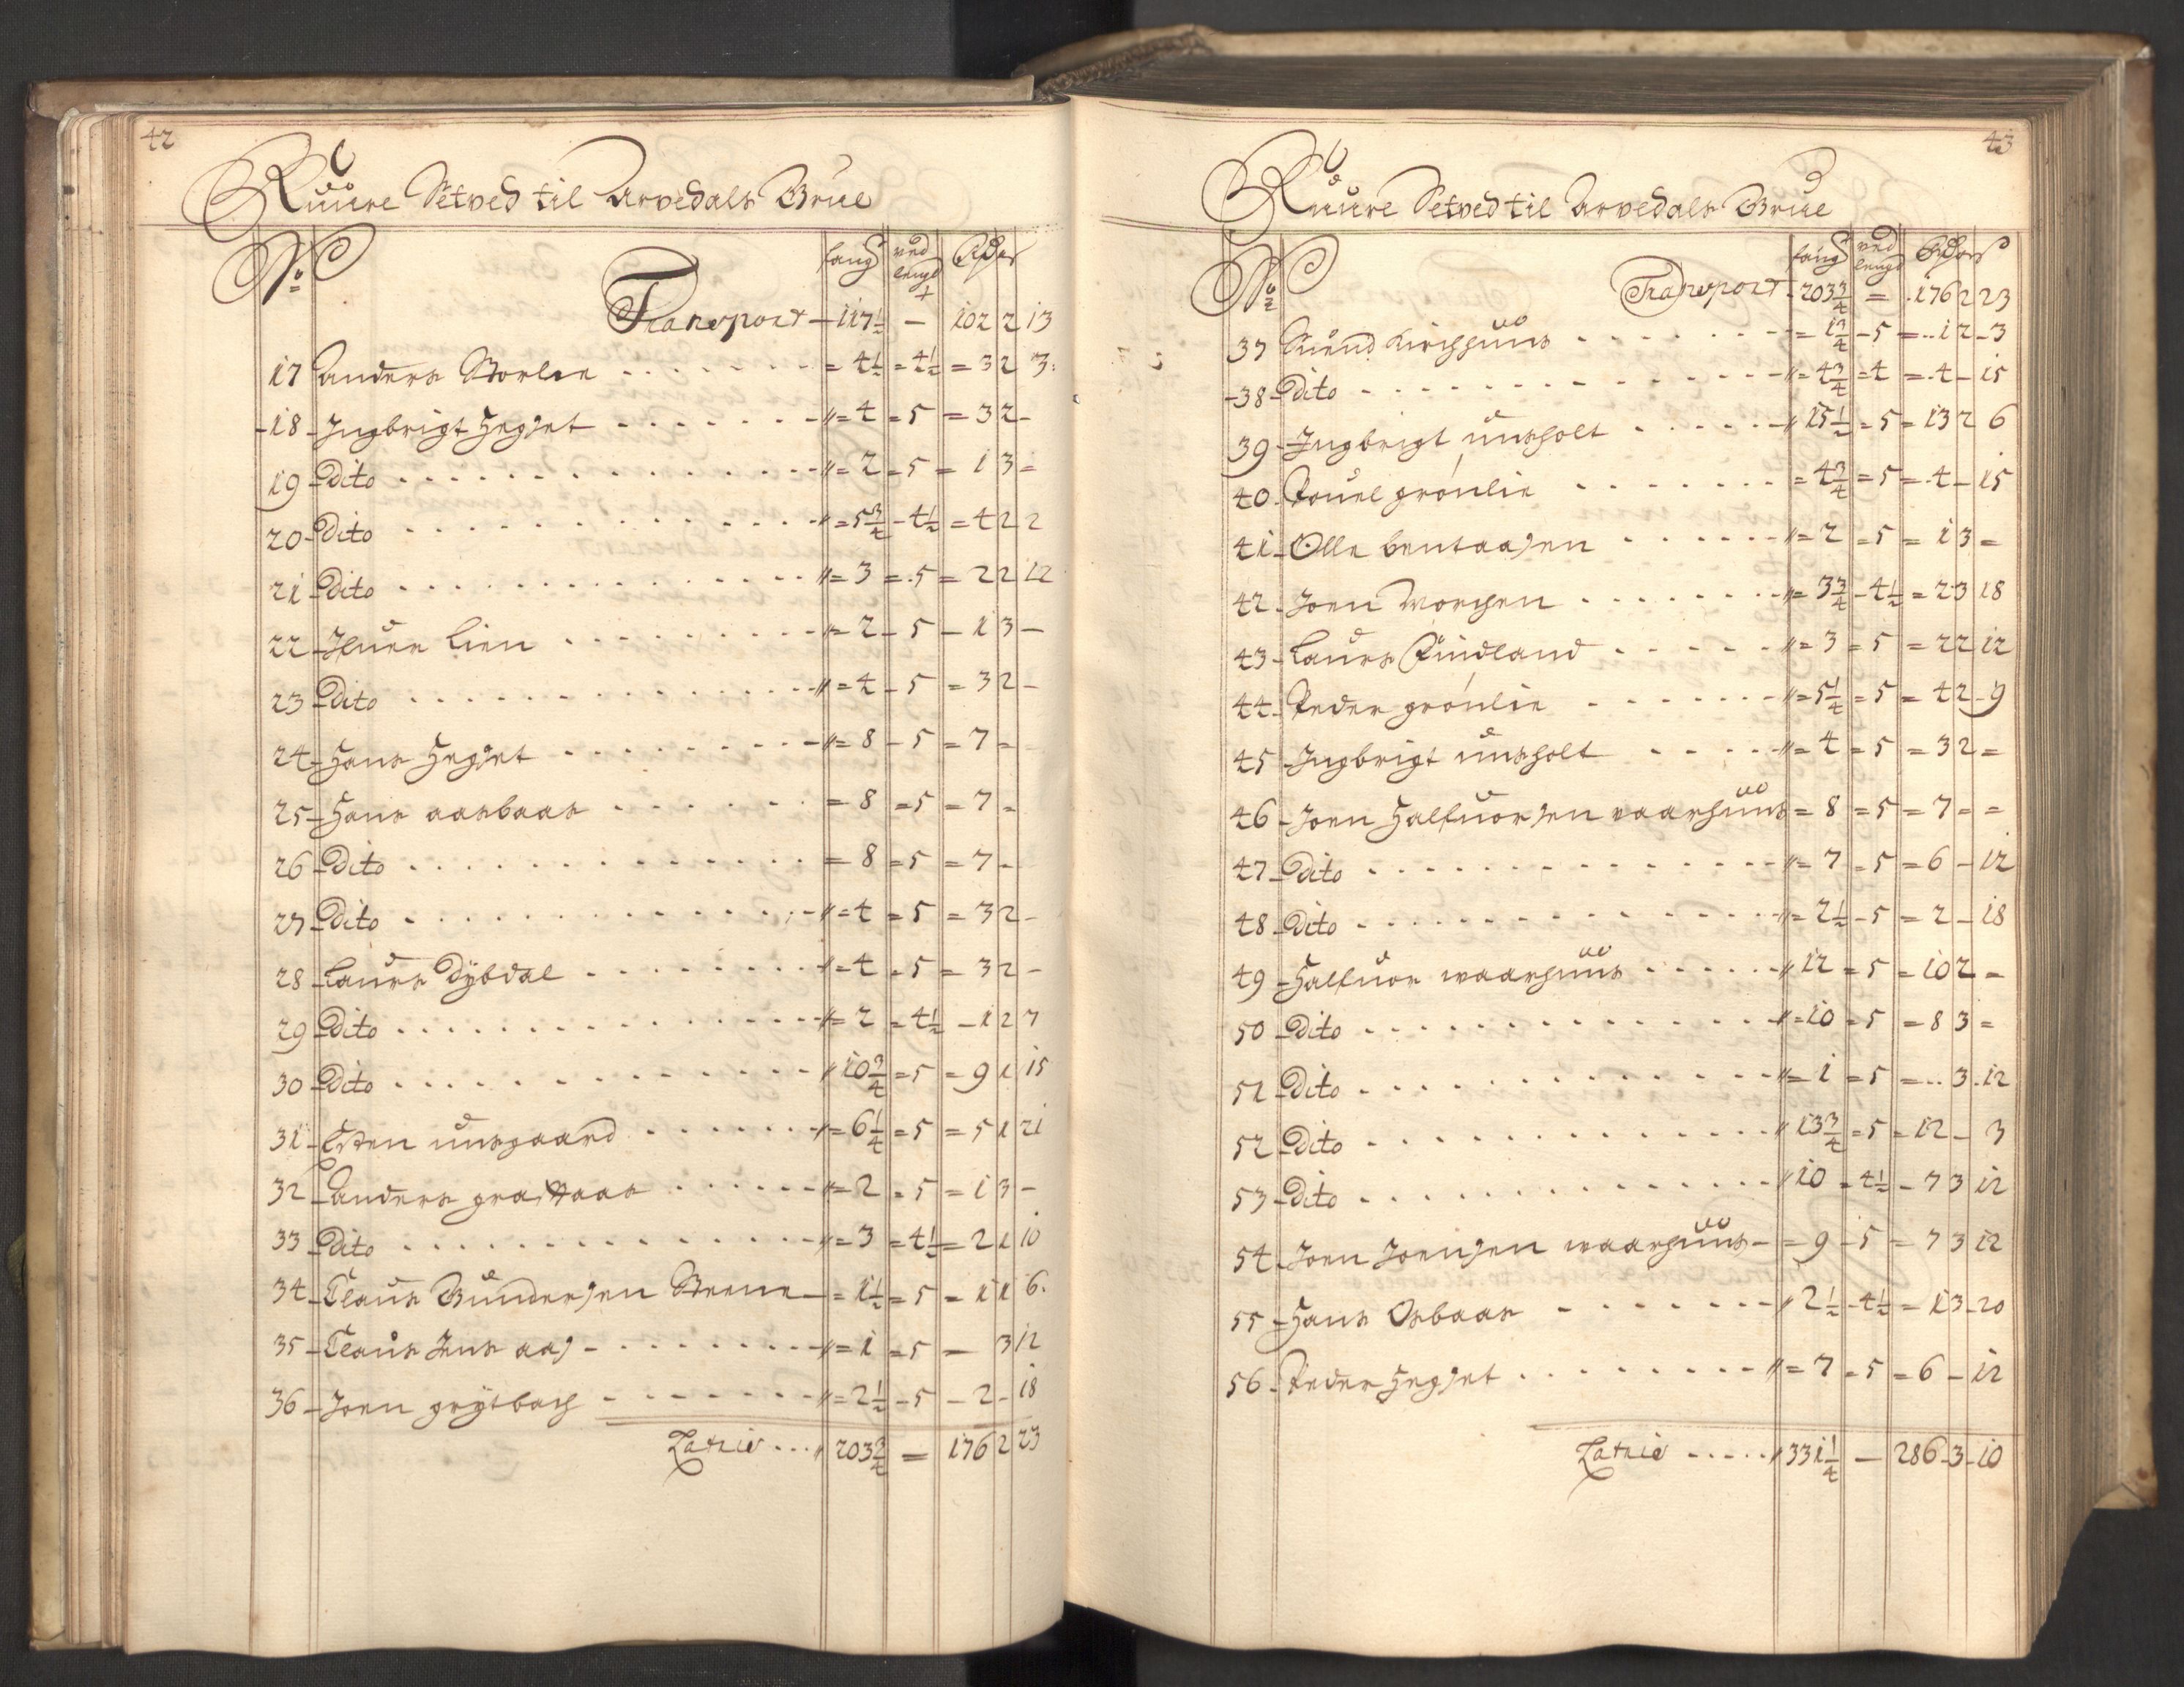 42
Ruure Setved til Arvedals Brue
No fang ved lengd Rdr
Transport - 117½ - 102 2 13
17 Anders Storlie = 4½ = 4½ = 3 2 3
18 Ingbrigt Hegset = 4 = 5 = 3 2 -
19 Dito = 2 = 5 = 1 3 =
20 Dito = 5¾ - 4½ = 4 2 2
21 Dito = 3 = 5 = 2 2 12
22 Ifuer Lien = 2 - 5 - 1 3 -
23 Dito = 4 - 5 = 3 2 -
24 Hans Hegset = 8 - 5 = 7 =
25 Hans aasbaas = 8 = 5 = 7 =
26 Dito = 8 = 5 = 7 -
27 Dito = 4 = 5 = 3 2 -
28 Laurs Dybdal = 4 = 5 = 3 2 -
29 Dito = 2 = 4½ - 1 2 7
30 Dito 10¾ = 5 = 9 1 15
31 Esten unsgaard = 6¼ = 5 = 5 1 21
32 Anders = 2 = 5 = 1 3 -
33 Dito = 3 = 4½ = 2 1 10
34 Claus Gundersen Steene = 1½ = 5 = 1 1 6
35 Claus Jens aas = 1 = 5 - 3 12
36 Joen grytbach = 2½ - 5 - 2 - 18
Latrie 203¾ = 176 2 23
43
Ruure Setved til Arvedals Brue
No fang ved lengd Rdr
Transport - 203¾ = 176 2 23
37 Suend Kirchhuus = 1¾ - 5 = 1 2 - 3
38 Dito = 4¾ = 4 = 4 - 15
39 Ingbrigt unsholt 15½ = 5 = 13 2 6
40 Pouel grønlie = 4¾ = 5 = 4 - 15
41 Olle bentaasen = 2 = 5 = 1 3 =
42 Joen Morchen = 3¾ - 4½ = 2 3 18
43 Laurs Findland = 3 = 5 = 2 2 12
44 Peder grønlie = 5¼ = 5 = 4 2 - 9
45 Ingbrigt unsholt = 4 = 5 = 3 2 =
46 Joen Halfuorsen vaarhuus = 8 = 5 = 7 = =
47 Dito = 7 = 5 = 6 - 12
48 Dito = 2½ - 5 = 2 - 18
49 Halfuor waarhuus 12 = 5 = 10 2 =
50 Dito = 10 = 5 = 8 3 =
51 Dito = 1 = 5 = 3 12
52 Dito 13¾ = 5 = 12 - 3
53 Dito 10 = 4½ - 7 3 12
54 Joen Joensen waarhuus = 9 - 5 = 7 3 12
55 Hans Osbaas 2½ - 4½ = 1 3 - 20
56 Peder Hegset = 7 = 5 = 6 - 12
Latrie 331¼ - 286 - 3 - 10